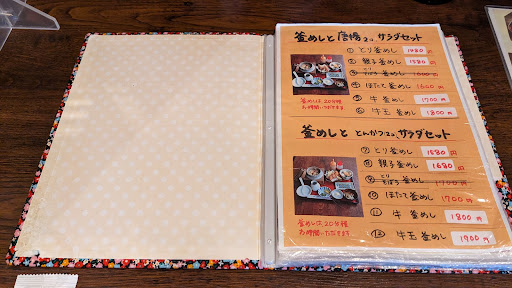 釜めしと 唐揚2コ サラダセット
① とり釜めし 1480円
② 親子釜めし 1580円
③ とりそぼろ釜めし 1600円
④ ほたて釜めし 1600円
⑤ 牛 釜めし 1700円
⑥ 牛玉 釜めし 1800円
釜めしは、20分程
お時間いただきます
釜めしと とんかつ2コ サラダセット
⑦ とり釜めし 1580円
⑧ 親子釜めし 1680円
⑨ とりそぼろ釜めし 1700円
⑩ ほたて釜めし 1700円
⑪ 牛 釜めし 1800円
⑫ 牛玉釜めし 1900円
釜めしは、20分程
お時間いただきます